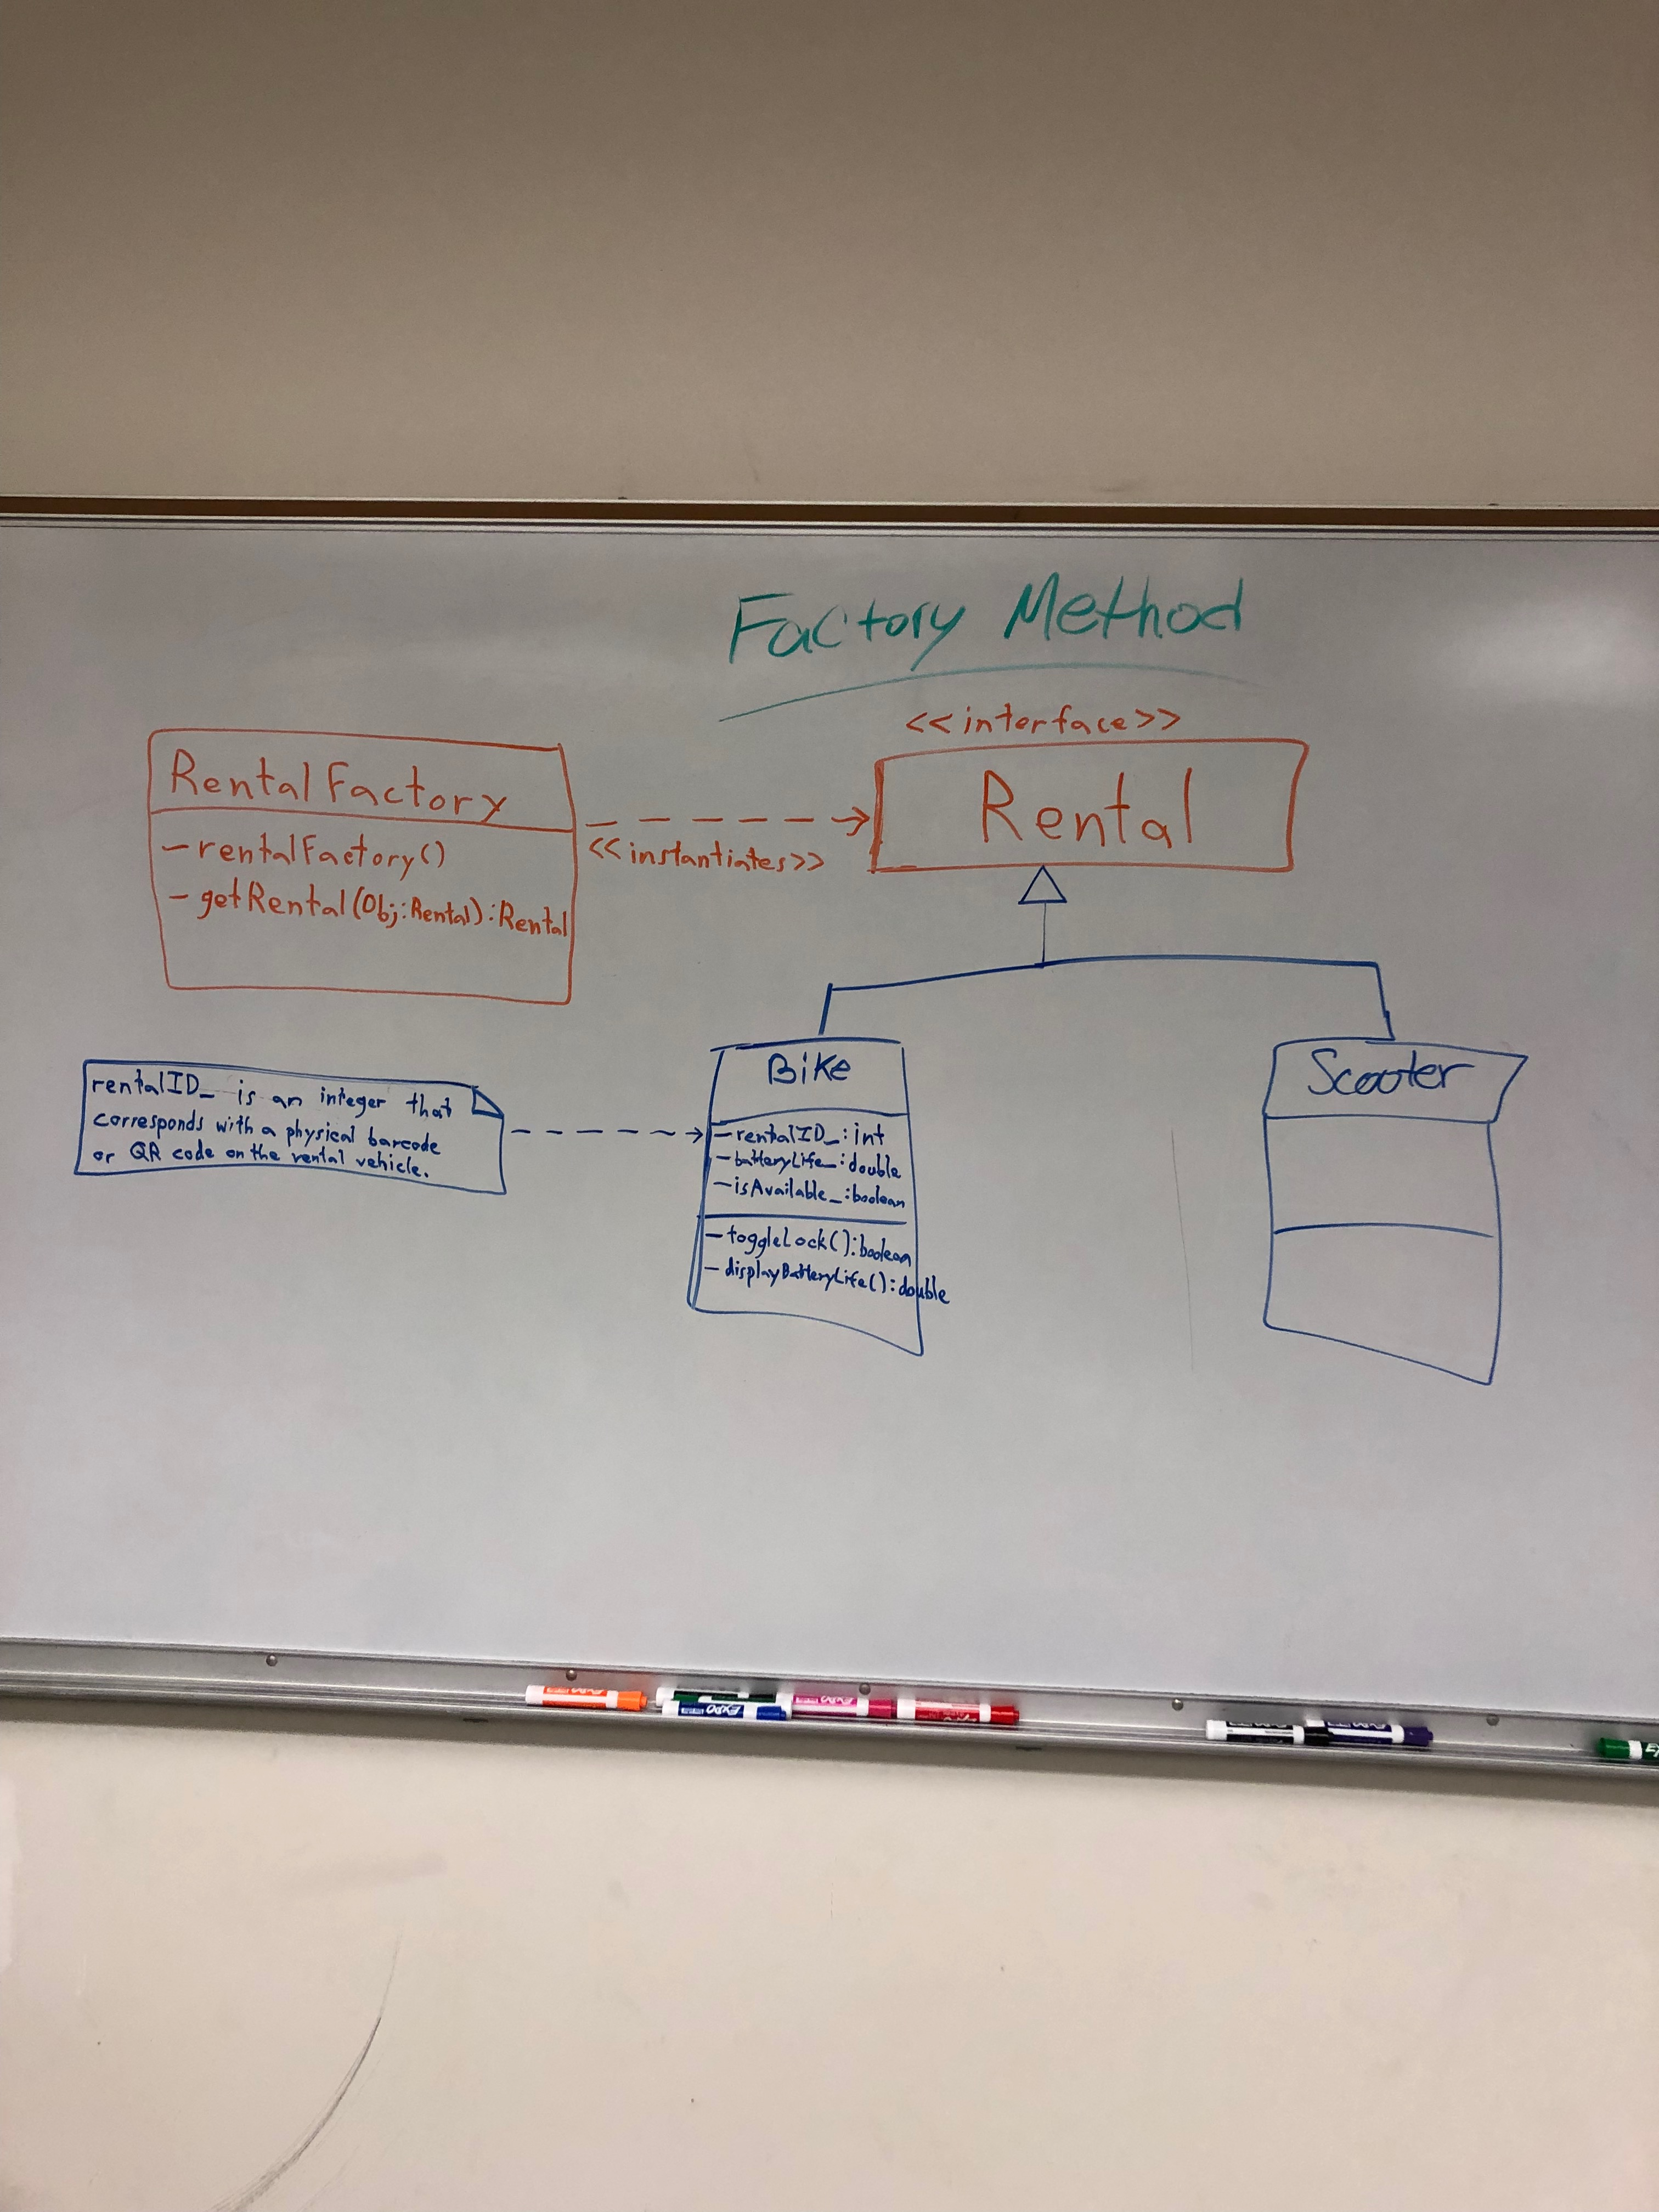 Factory Method
<<interface>>
RentalFactory
-rentalFactory()
-getRental(Obj:Rental):Rental
<<instantiates>>
Rental
rentalID_ is an integer that
corresponds with a physical barcode
or QR code on the rental vehicle.
Bike
-rentalID_:int
-batteryLife_:double
-isAvailable_:boolean
-toggleLock():boolean
-displayBatteryLife():double
Scooter
EXPO
EXPO